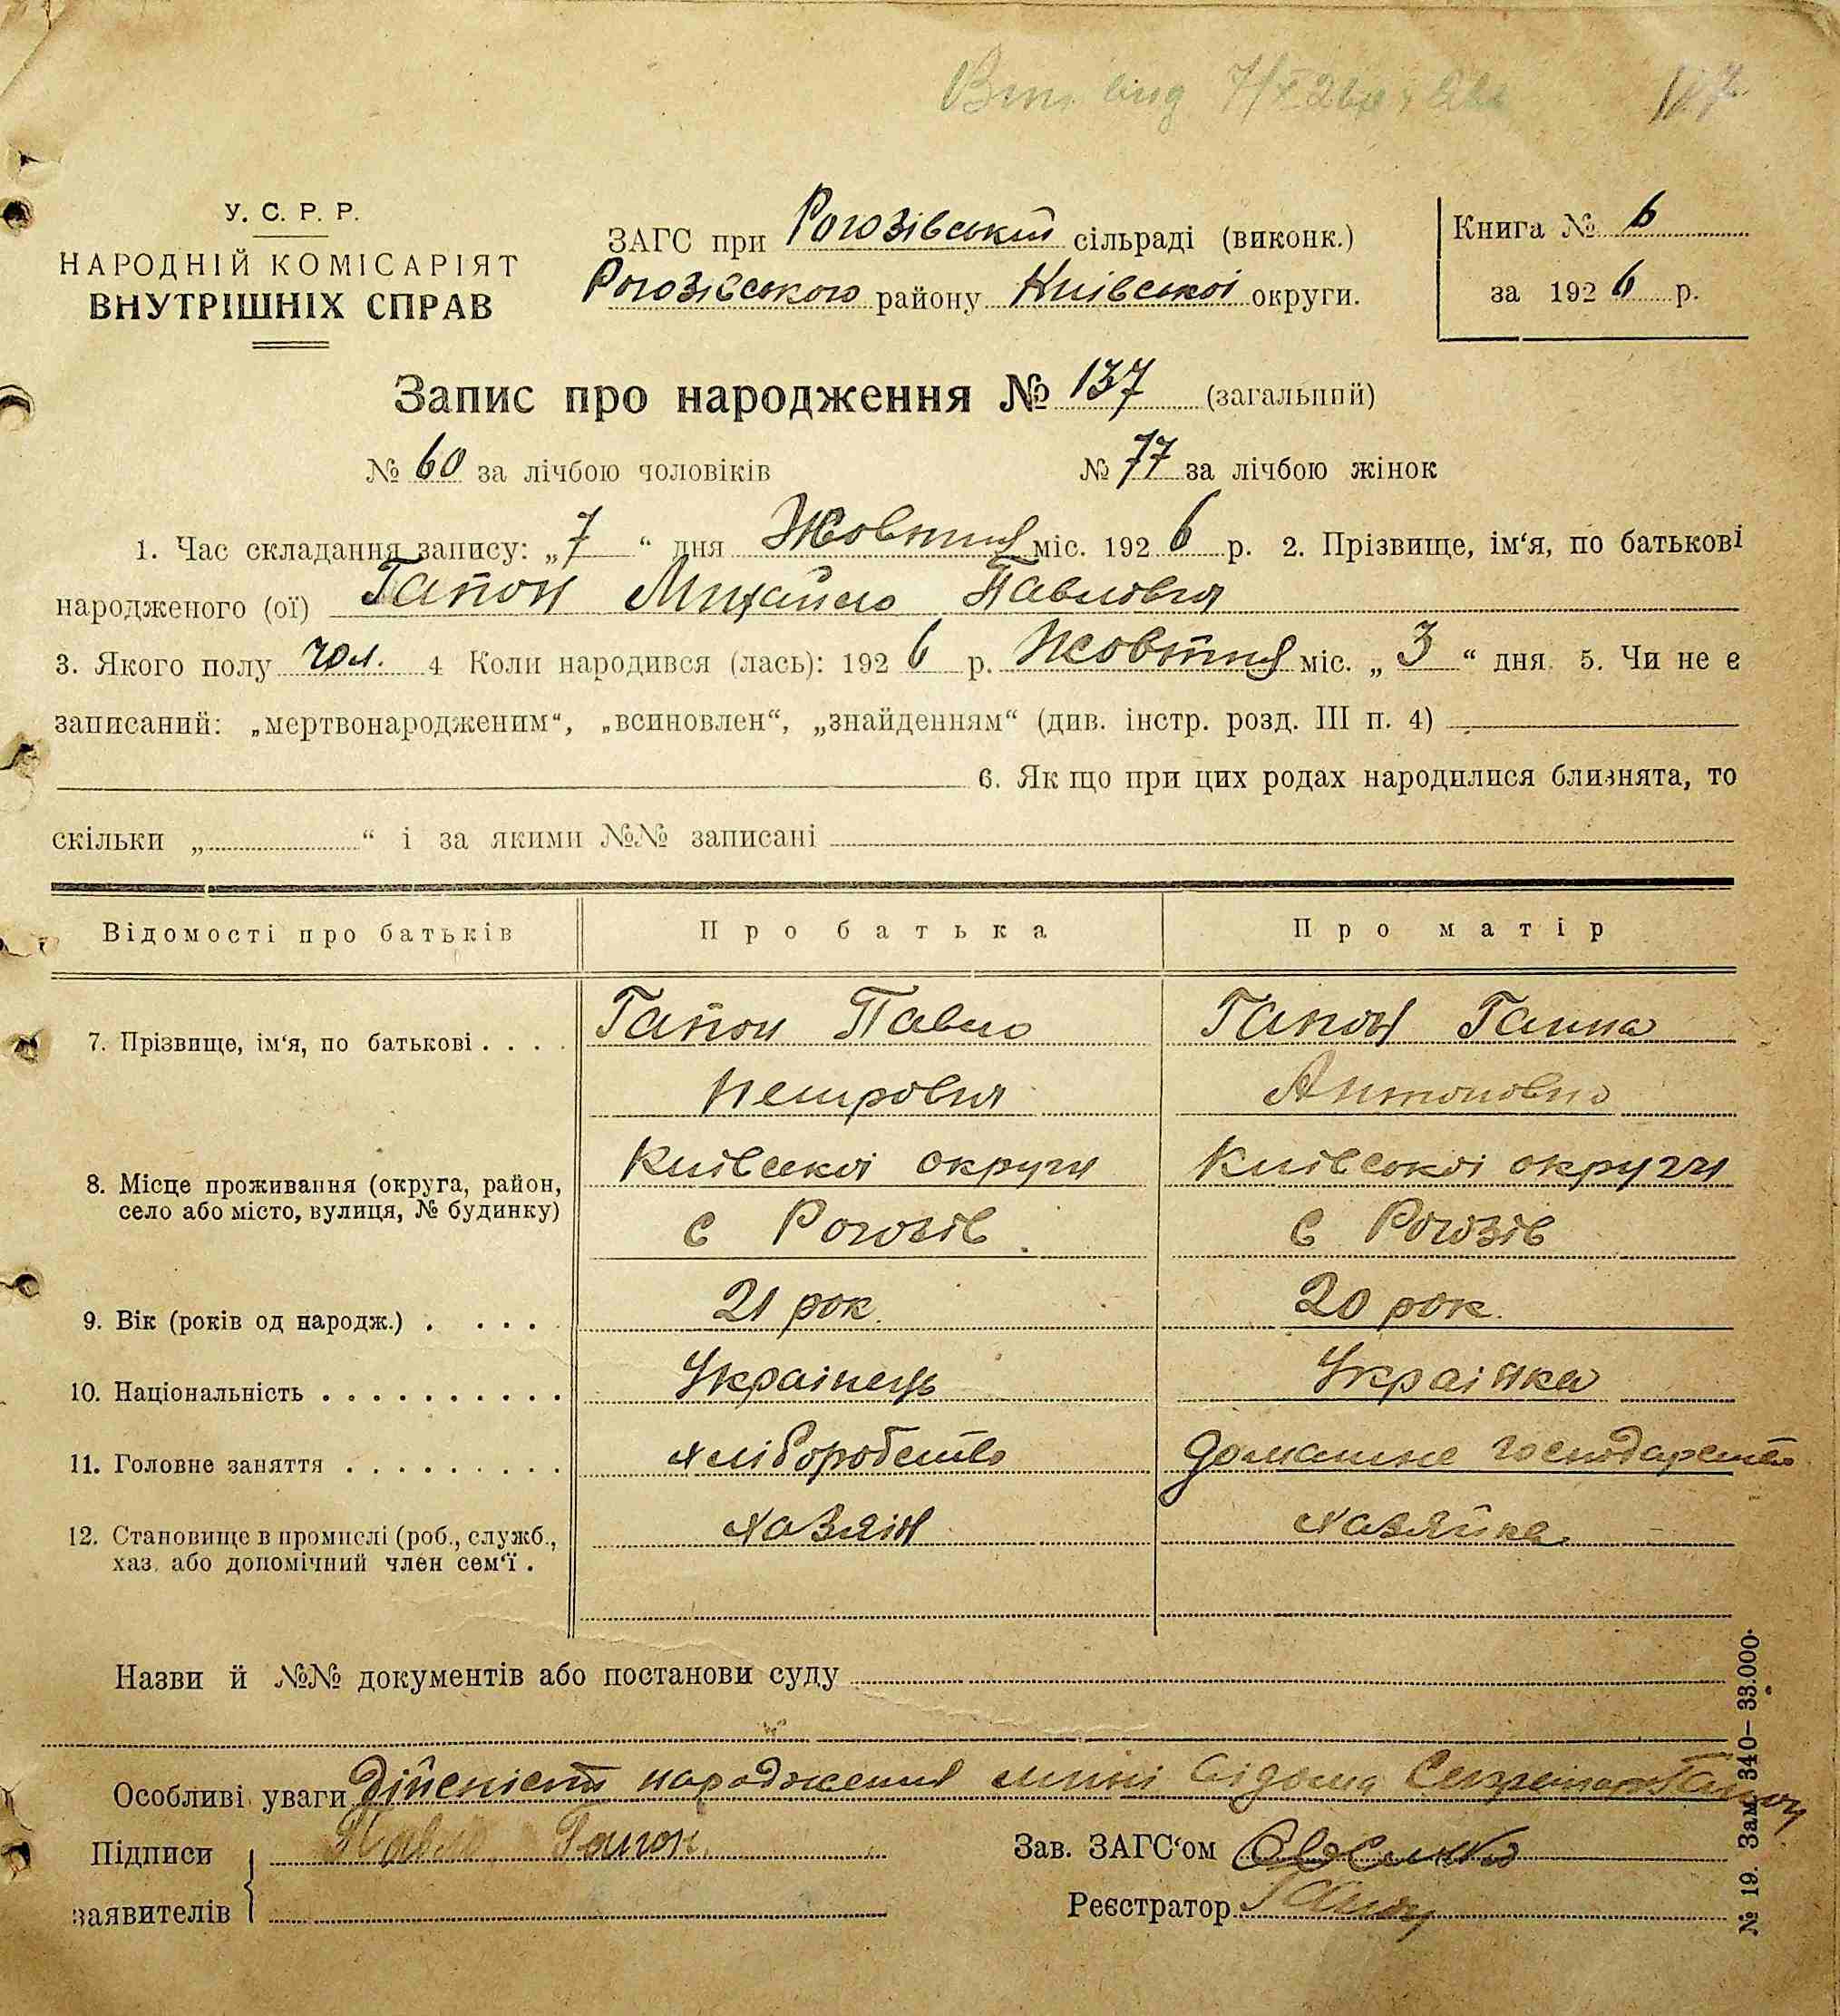 Вип. вид 7/X 26р
137
У. С. Р. Р.
НАРОДНІЙ КОМІСАРІЯТ
ВНУТРІШНІХ СПРАВ
ЗАГС при Рогозівській сільраді (виконк.)
Рогозівського району Київської округи.
Книга № 6
за 1926 р.
Запис про народження № 137 (загальний)
№ 60 за лічбою чоловіків № 77 за лічбою жінок
1. Час складання запису: „7“ дня Жовтня міс. 1926 р. 2. Прізвище, ім‘я, по батькові
народженого (ої) Гапон Михайло Павлович
3. Якого полу чол. 4 Коли народився (лась): 1926 р. Жовтня міс. „3“ дня. 5. Чи не є
записаний: „мертвонародженим“, „всиновлен“, „знайденням“ (див. інстр. розд. III п. 4)
6. Як що при цих родах народилися близнята, то
скільки „ “ і за якими №№ записані
Відомості про батьків Про батька Про матір
7. Прізвище, ім‘я, по батькові . . . . Гапон Павло Гапон Ганна
Петрович Антоновна
8. Місце проживання (округа, район, Київської округи Київської округи
село або місто, вулиця, № будинку) с Рогозів с Рогозів
9. Вік (років од народж.) . . . . 21 рок. 20 рок.
10. Національність . . . . . . . . . . Українець Українка
11. Головне заняття . . . . . . . . . хліборобство домашнє господарство
12. Становище в промислі (роб., служб., хазяїн хазяйка
хаз. або допомічний член сем‘ї .
Назви й №№ документів або постанови суду
Особливі уваги Дійсність народження мині відома Секретар Гапон
Підписи Павло Гапон Зав. ЗАГС‘ом
заявителів Реєстратор Гапон
№ 19. Зам. 340– 33.000.